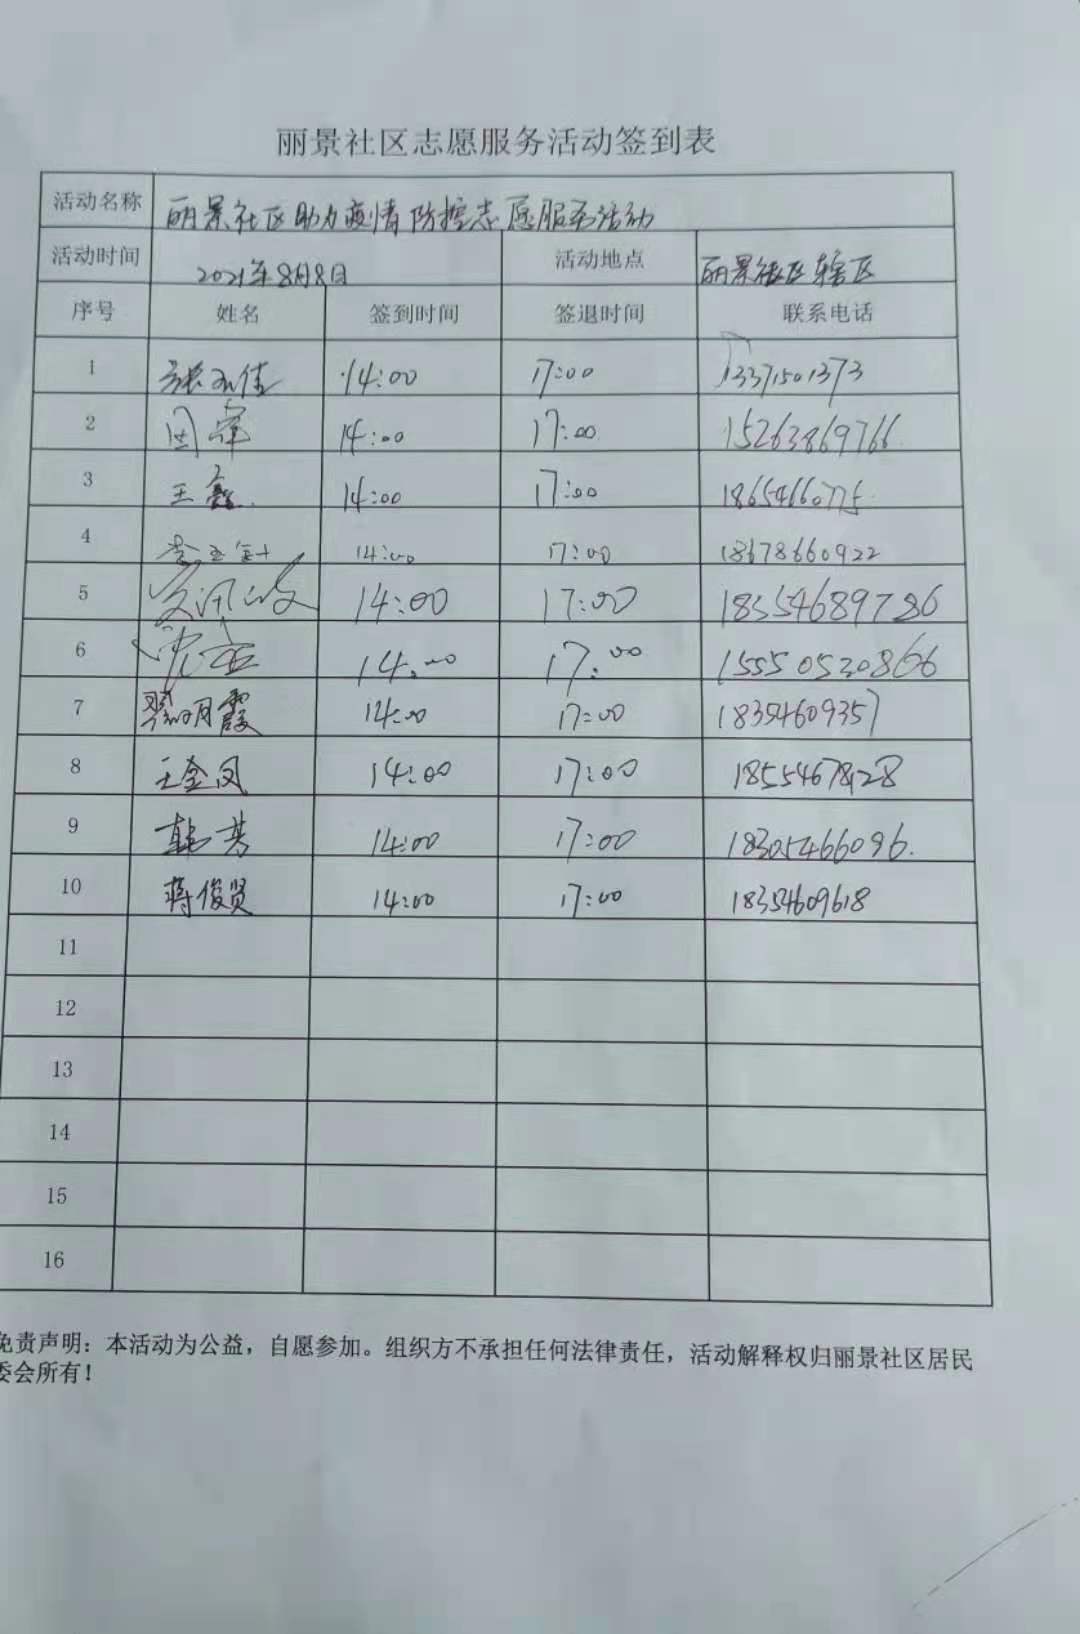 丽景社区志愿服务活动签到表
活动名称 丽景社区助力疫情防控志愿服务活动
活动时间 2021年8月8日 活动地点 丽景社区辖区
序号 姓名 签到时间 签退时间 联系电话
1 14:00 17:00 13371501373
2 14:00 17:00 15263869766
3 王鑫 14:00 17:00 18654660775
4 14:00 17:00 18678660922
5 14:00 17:00 18354689786
6 14:00 17:00 15550520866
7 翟明霞 14:00 17:00 18354609357
8 王金凤 14:00 17:00 18554678128
9 韩芳 14:00 17:00 18305466096.
10 蒋俊贤 14:00 17:00 18354609618
11
12
13
14
15
16
免责声明：本活动为公益，自愿参加。组织方不承担任何法律责任，活动解释权归丽景社区居民
委会所有！